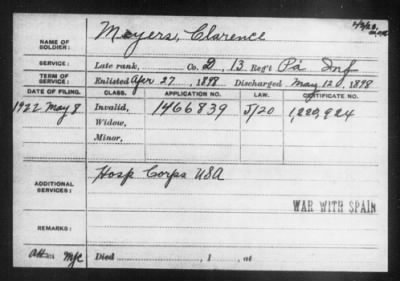 NAME OF SOLDIER: Meyers, Clarence
SERVICE: Late rank, Co. D, 13 Reg't Pa Inf
TERM OF SERVICE: Enlisted Apr 27, 1898 Discharged May 12, 1898
DATE OF FILING. CLASS. APPLICATION NO. LAW. CERTIFICATE NO.
1922 May 8 Invalid, 1466839 J/20
Widow,
Minor,
ADDITIONAL SERVICES: Hosp Corps USA
WAR WITH SPAIN
REMARKS:
Died , 1 , at